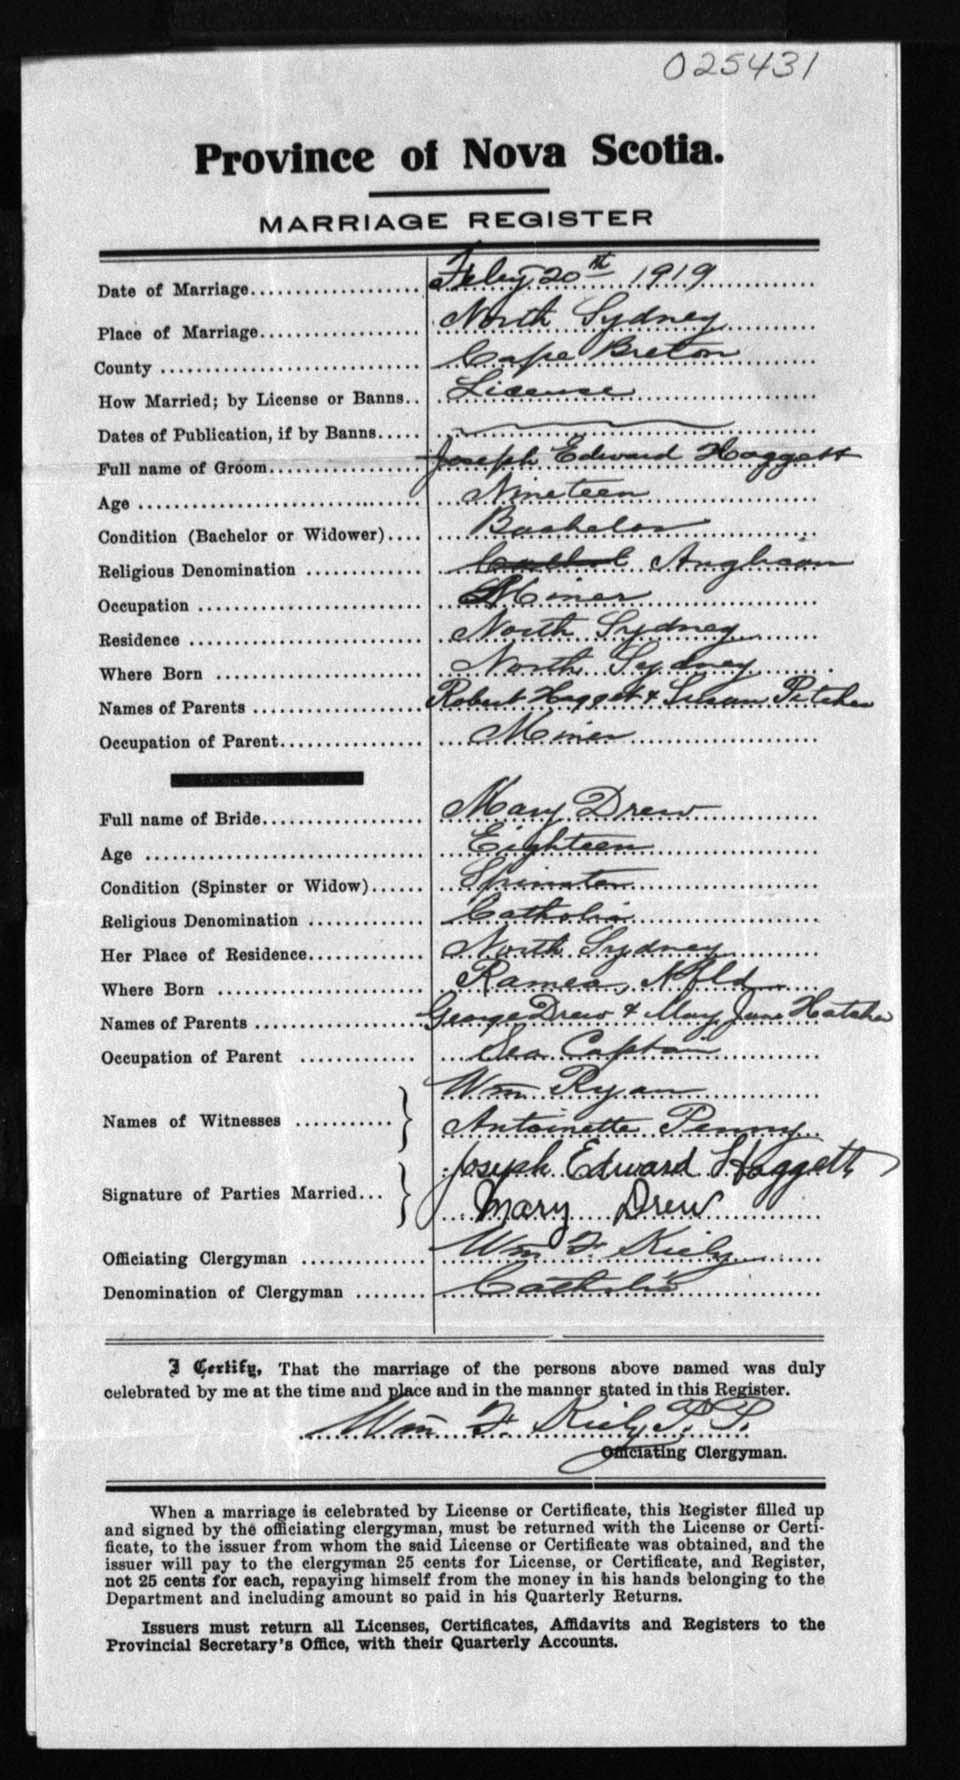 025431
Province of Nova Scotia.
MARRIAGE REGISTER
Date of Marriage.................... Feby 20th 1919
Place of Marriage.................. North Sydney
County ............................. Cape Breton
How Married; by License or Banns.. License
Dates of Publication, if by Banns.....
Full name of Groom................. Joseph Edward Haggett
Age ................................ Nineteen
Condition (Bachelor or Widower).... Bachelor
Religious Denomination ............. Anglican
Occupation ......................... Miner
Residence .......................... North Sydney
Where Born ....................... North Sydney
Names of Parents ................... Robert Haggett & Susan Pitcher
Occupation of Parent................ Miner
Full name of Bride.................. Mary Drew
Age ............................... Eighteen
Condition (Spinster or Widow)...... Spinster
Religious Denomination ............. Catholic
Her Place of Residence............. North Sydney
Where Born ....................... Ramea, Nfld
Names of Parents ................... George Drew & Mary Jane Hatcher
Occupation of Parent ............. Sea Captain
Wm Ryan
Names of Witnesses ...........
Antoinette Penny
Joseph Edward Haggett
Signature of Parties Married...
Mary Drew
Officiating Clergyman .............. Wm F. Kiely
Denomination of Clergyman ........ Catholic
I Certify, That the marriage of the persons above named was duly
celebrated by me at the time and place and in the manner stated in this Register.
Wm F. Kiely P.P.
Officiating Clergyman.
When a marriage is celebrated by License or Certificate, this Register filled up
and signed by the officiating clergyman, must be returned with the License or Certi-
ficate, to the issuer from whom the said License or Certificate was obtained, and the
issuer will pay to the clergyman 25 cents for License, or Certificate, and Register,
not 25 cents for each, repaying himself from the money in his hands belonging to the
Department and including amount so paid in his Quarterly Returns.
Issuers must return all Licenses, Certificates, Affidavits and Registers to the
Provincial Secretary's Office, with their Quarterly Accounts.